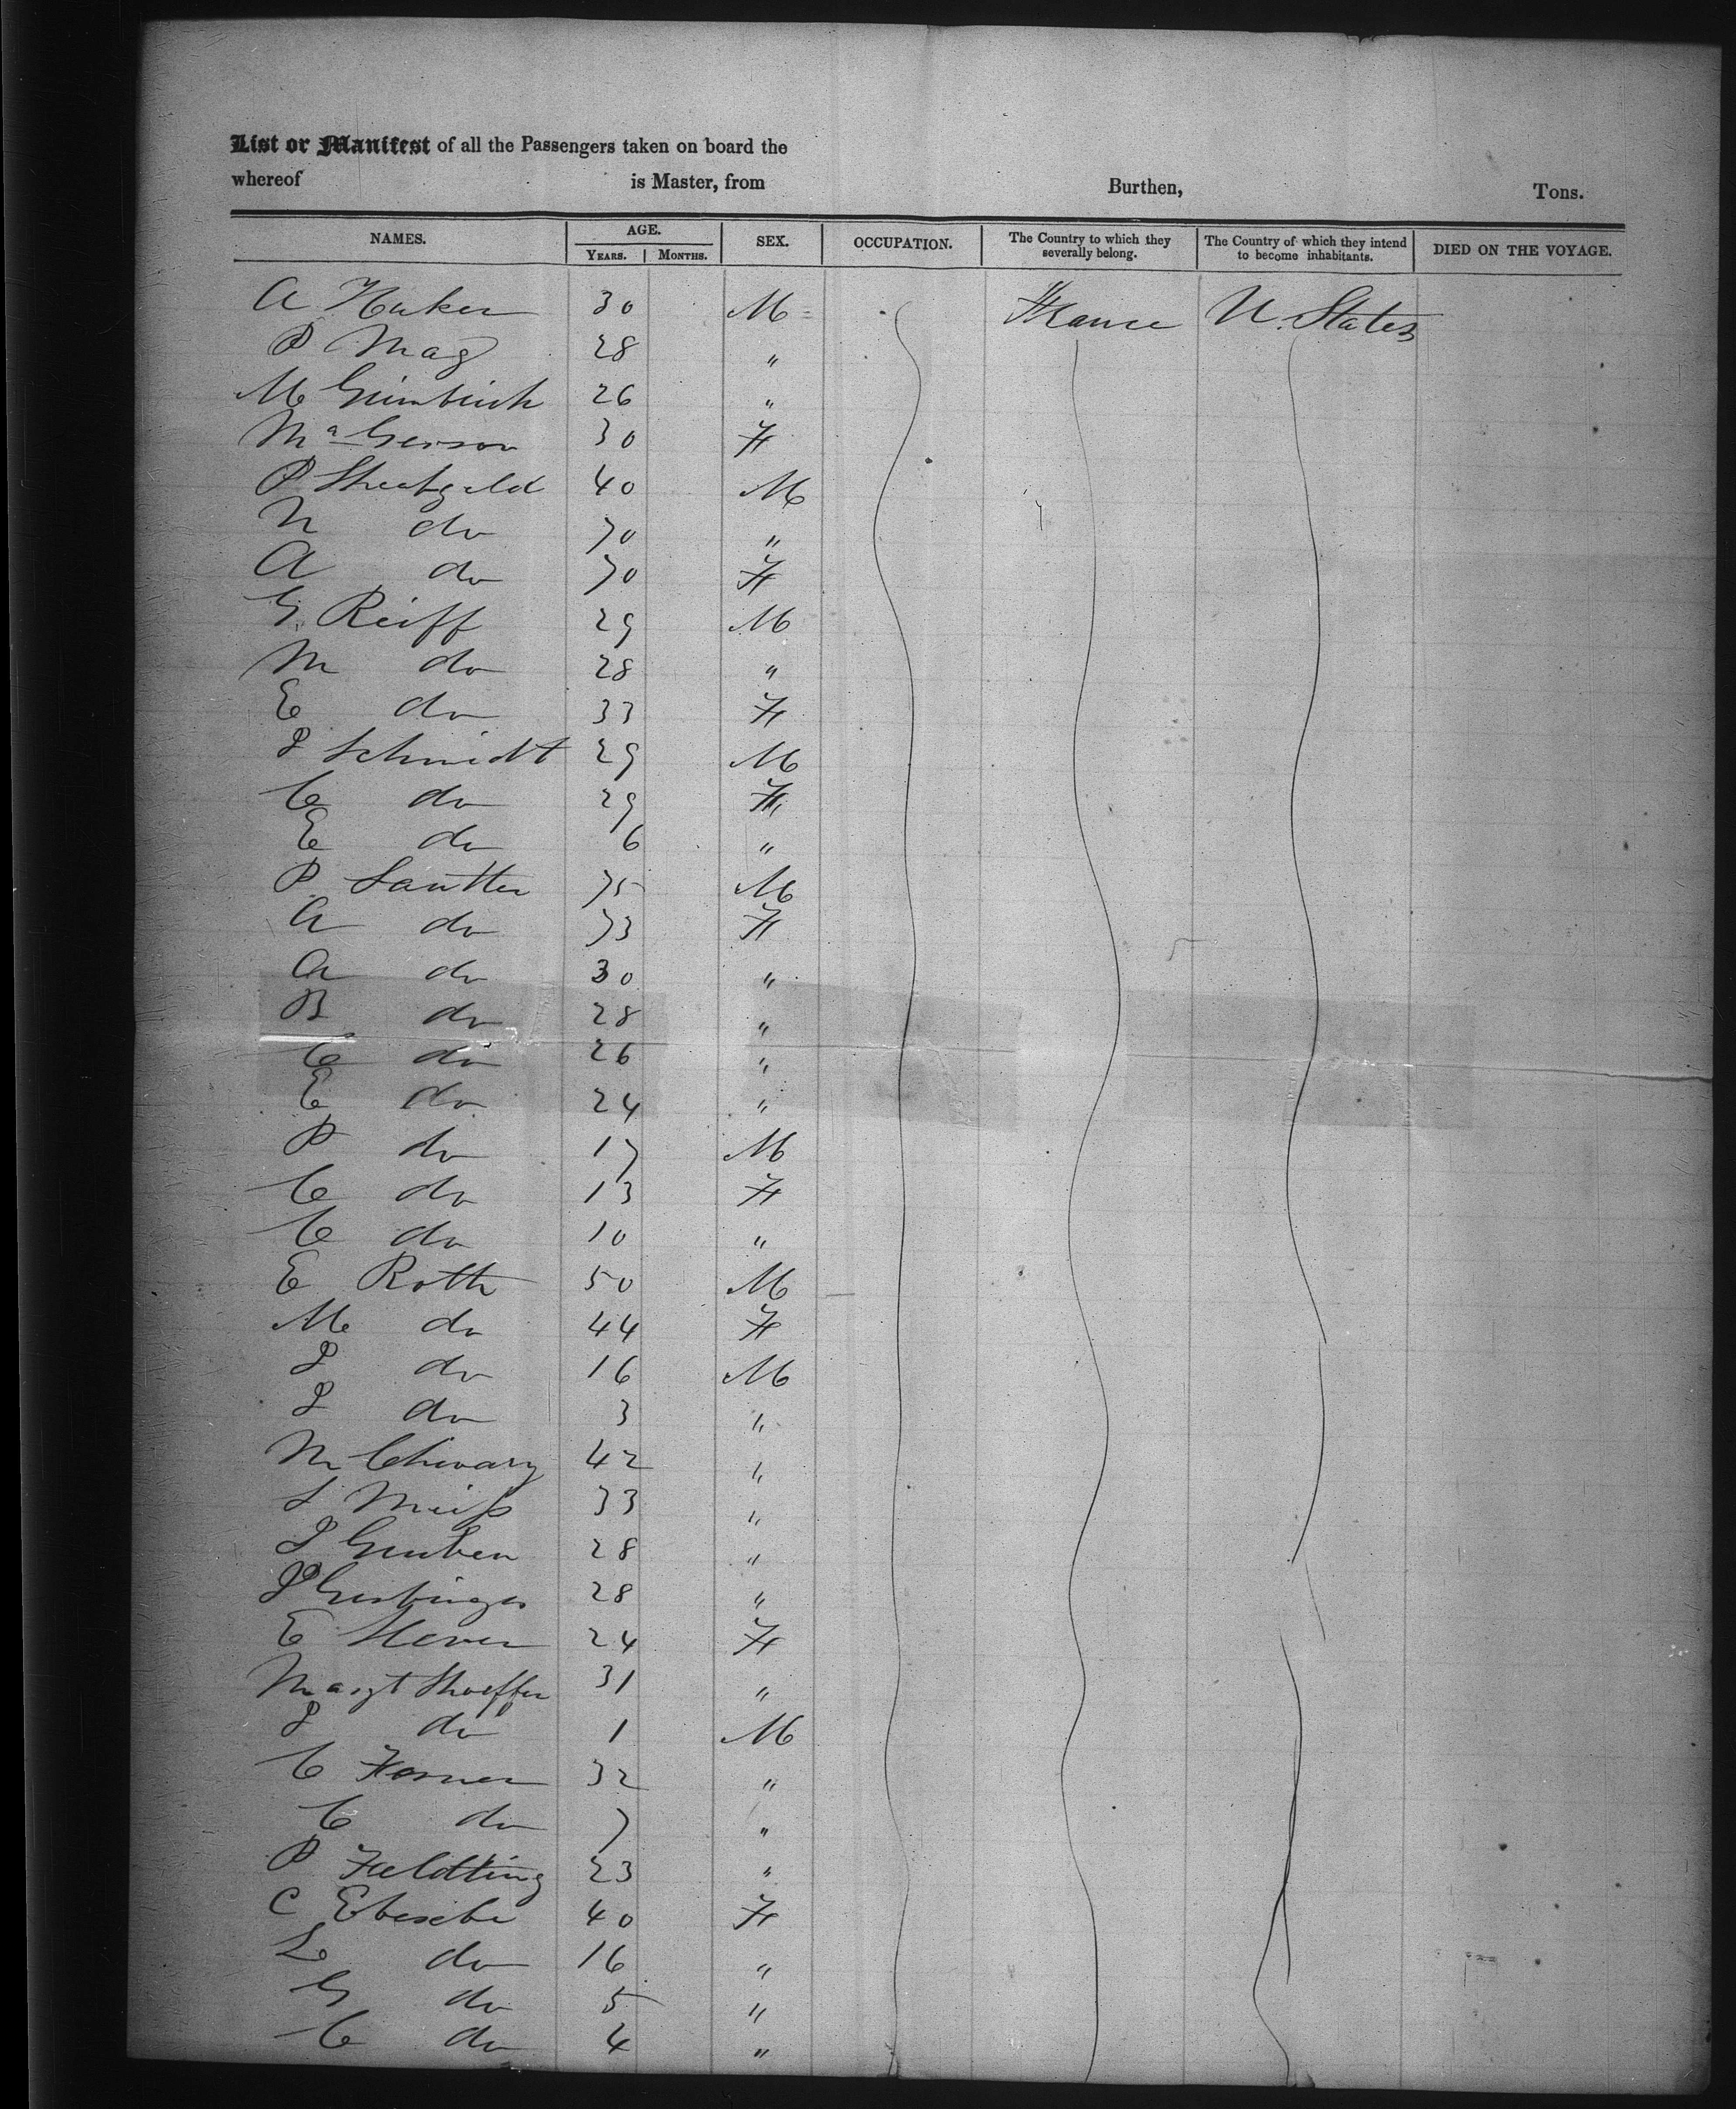 List or Manifest of all the Passengers taken on board the
whereof is Master, from Burthen, Tons.
NAMES. AGE. SEX. OCCUPATION. The Country to which they severally belong. The Country of which they intend to become inhabitants. DIED ON THE VOYAGE.
YEARS. MONTHS.
A 30 M France U. States
P May 28 "
M 26 "
Ma Gerson 30 F
P 40 M
N do 70 "
A do 70 F
G. Reiff 29 M
M do 28 "
E do 33 F
P Schmidt 29 M
C do 29 F
E do 6 "
P Sautter 75 M
A do 73 F
A do 30 "
B do 28 "
C do 26 "
E do 24 "
P do 17 M
C do 13 F
C do 10 "
E Roth 50 M
M do 44 F
P do 16 M
P do 3 "
M 42 "
S 33 "
P 28 "
P 28 "
E 24 F
Margt 31 "
P do 1 M
C 32 "
C do 7 "
P 23 "
C 40 F
L do 16 "
G do 5 "
C do 4 "